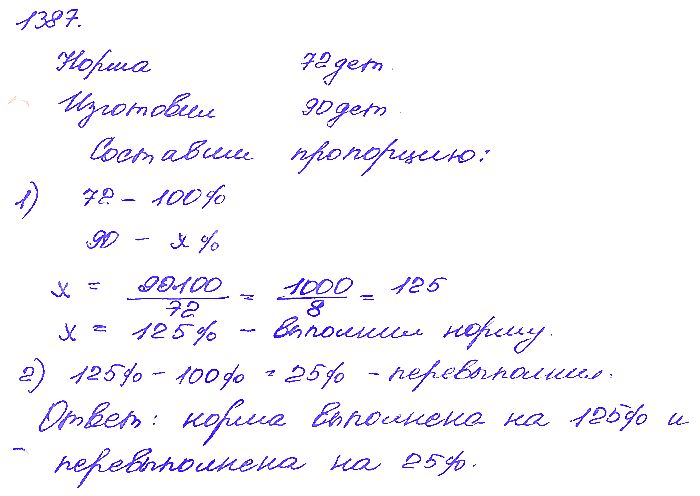 1387.
Норма 72 дет.
Изготовил 90 дет
Составим пропорцию:
1) 72 - 100%
90 - x%
x = 90100/72 = 1000/8 = 125
x = 125% - выполнил норму.
2) 125% - 100% = 25% - перевыполнил.
Ответ: норма выполнена на 125% и
перевыполнена на 25%.